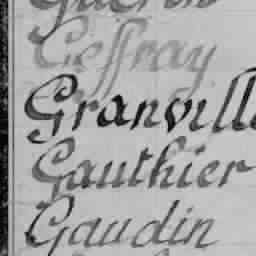 Geffray
Granvill
Gauthier
Gaudin